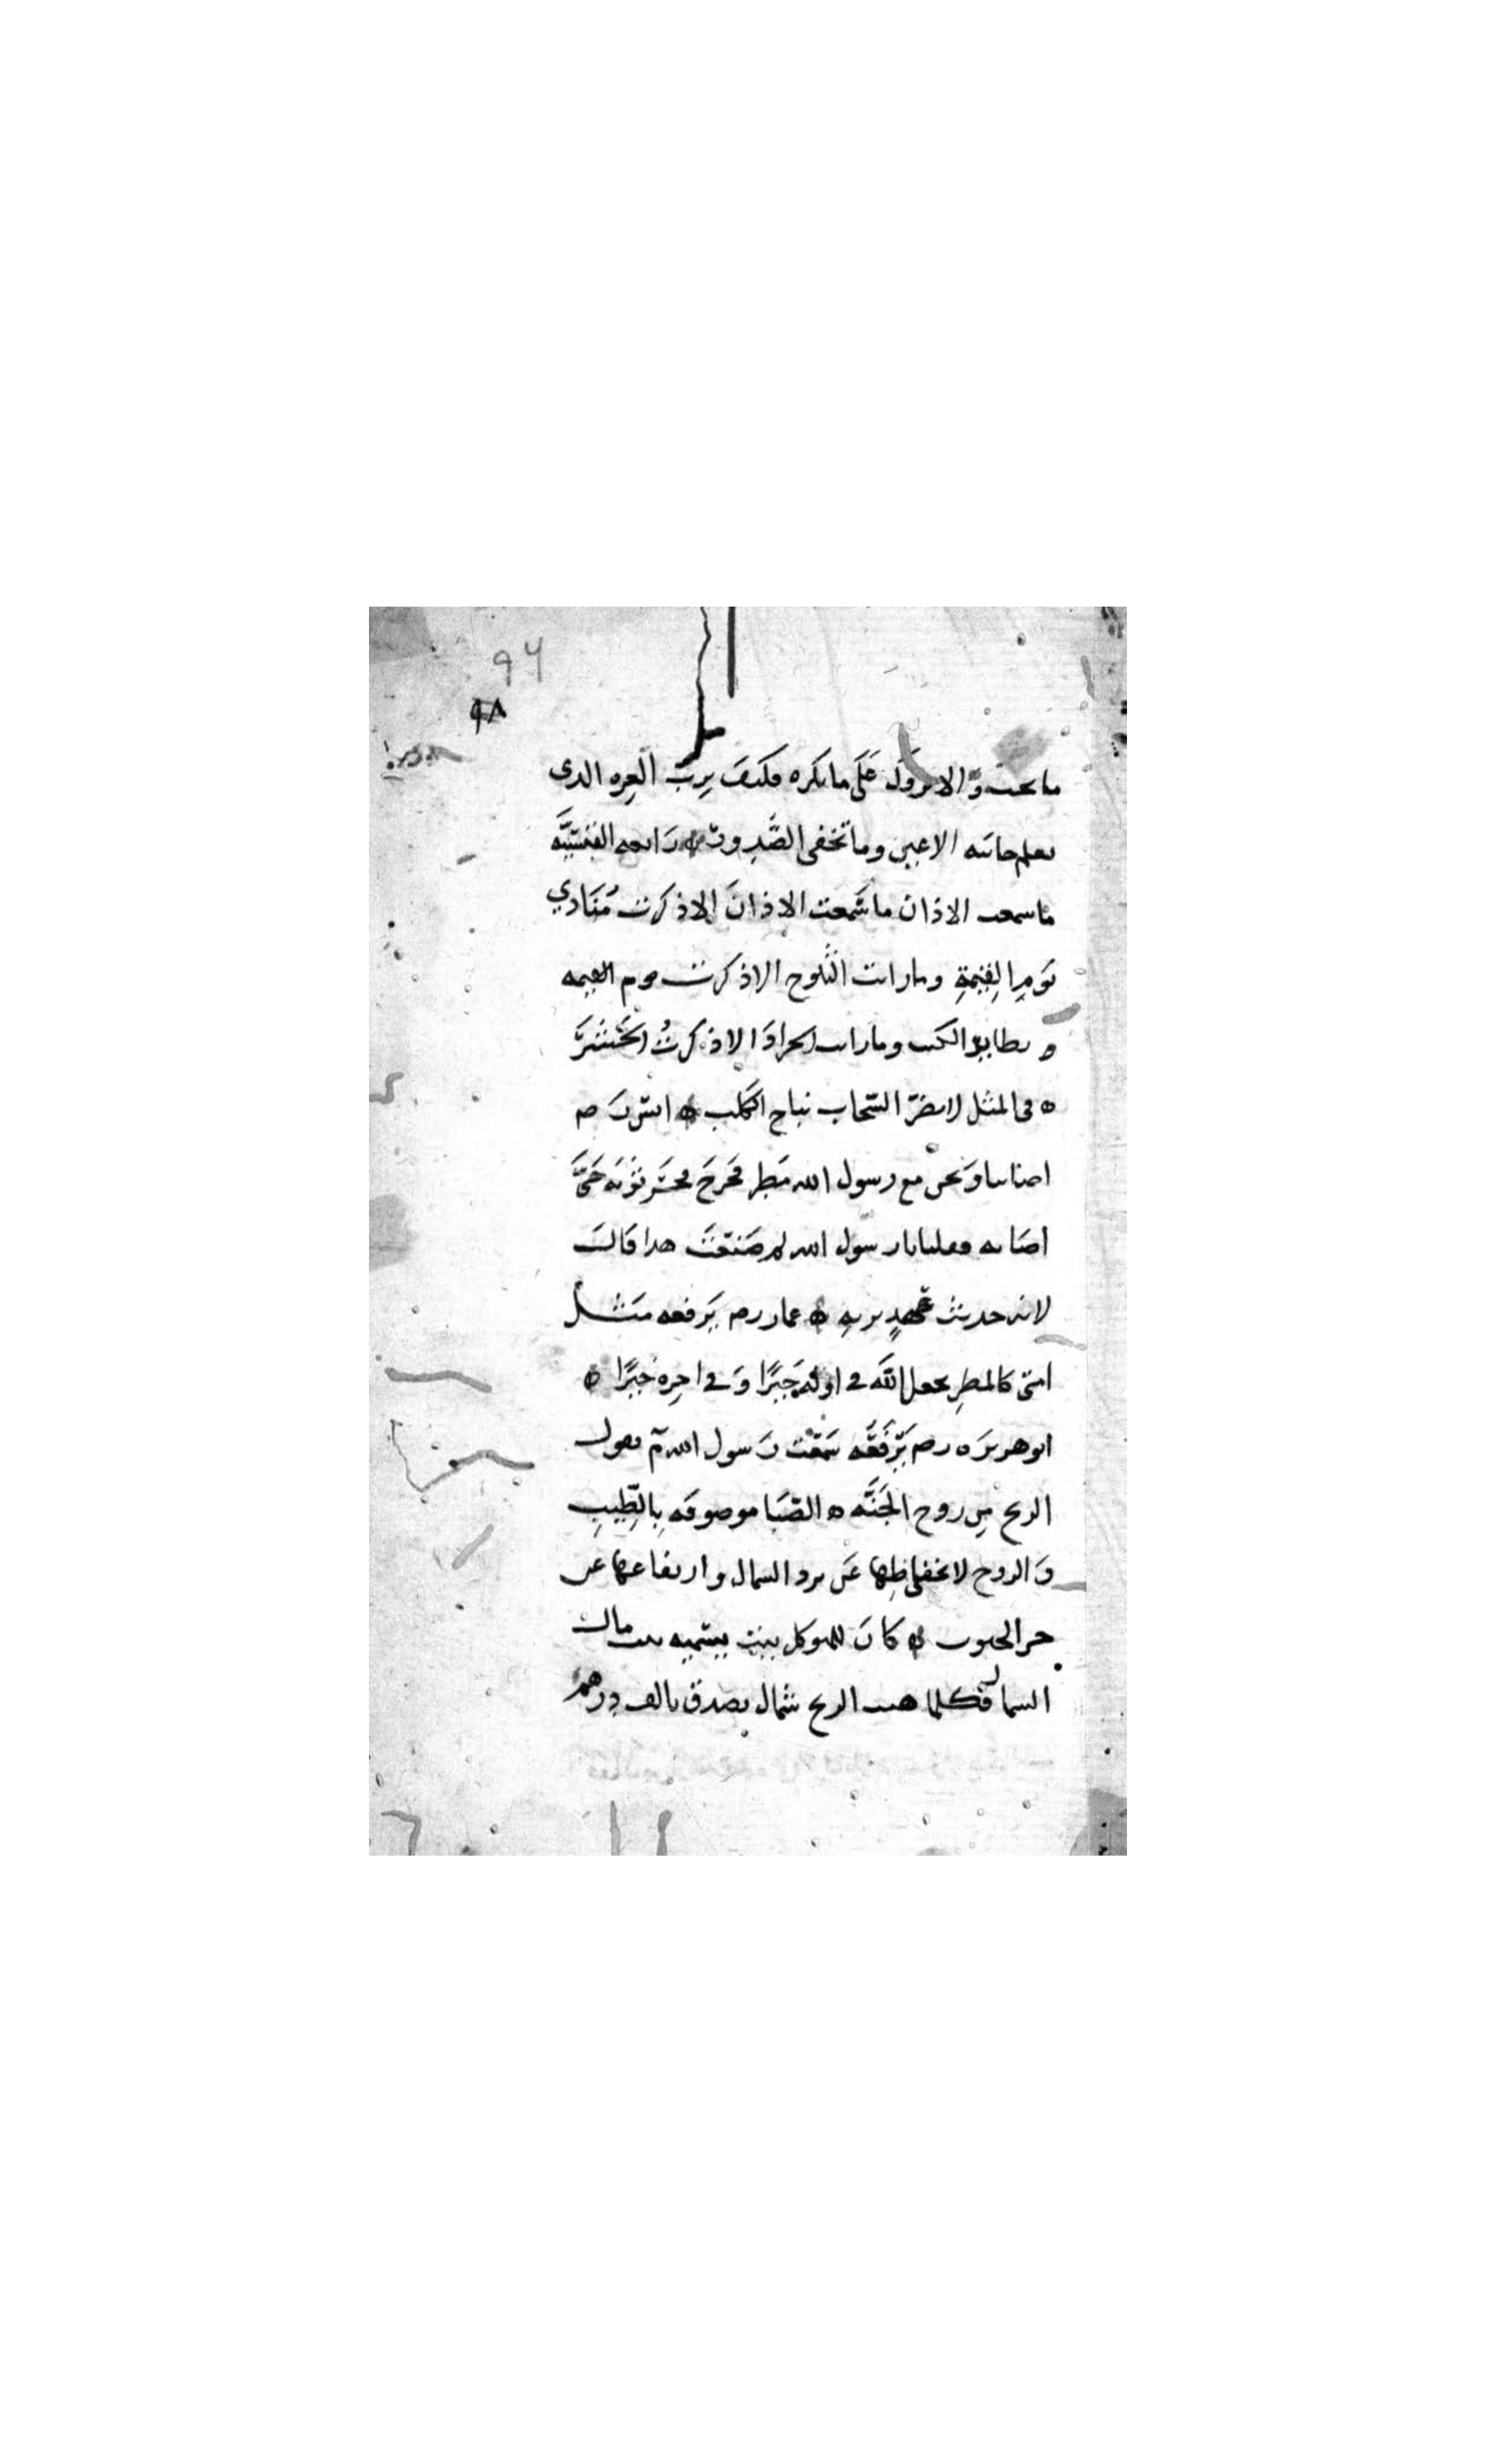 ٩٦
٩٨
ما تحت والا نزول على ما تكره فكيف برب العزه الذى
يعلم خاينه الاعين وما تخفى الصدور ه رابعه القيسيه
ما سمعت الاذان ما سمعت الاذان الا ذكرت منادي
يوم القيمة وما رايت الثلوج الا ذكرت يوم القيمه
و تطاير الكتب وما رايت الجراد الا ذكرت الحشر
ه فى المثل لا يضر السحاب نباح الكلب ه انس رضـ
اصابنا ونحن مع رسول الله مطر فخرج فحسر ثوبه حتى
اصابه فقلنا يا رسول الله لم صنعت هذا قال
لانه حديث عهد بربه ه عمار رضـ يرفعه مثل
امتى كالمطر يجعل الله في اوله خيرا وفي اخره خيرا ه
ابو هريره رضـ يرفعه سمعت رسول الله صـ يقول
الريح من روح الجنه ه الصبا موصوفه بالطيب
والروح لانخفاضها عن برد الشمال وارتفاعها عن
حر الجنوب ه كان للمتوكل بيت يسميه بيت مال
الشمال فكلما هبت الريح شمال تصدق بالف درهم